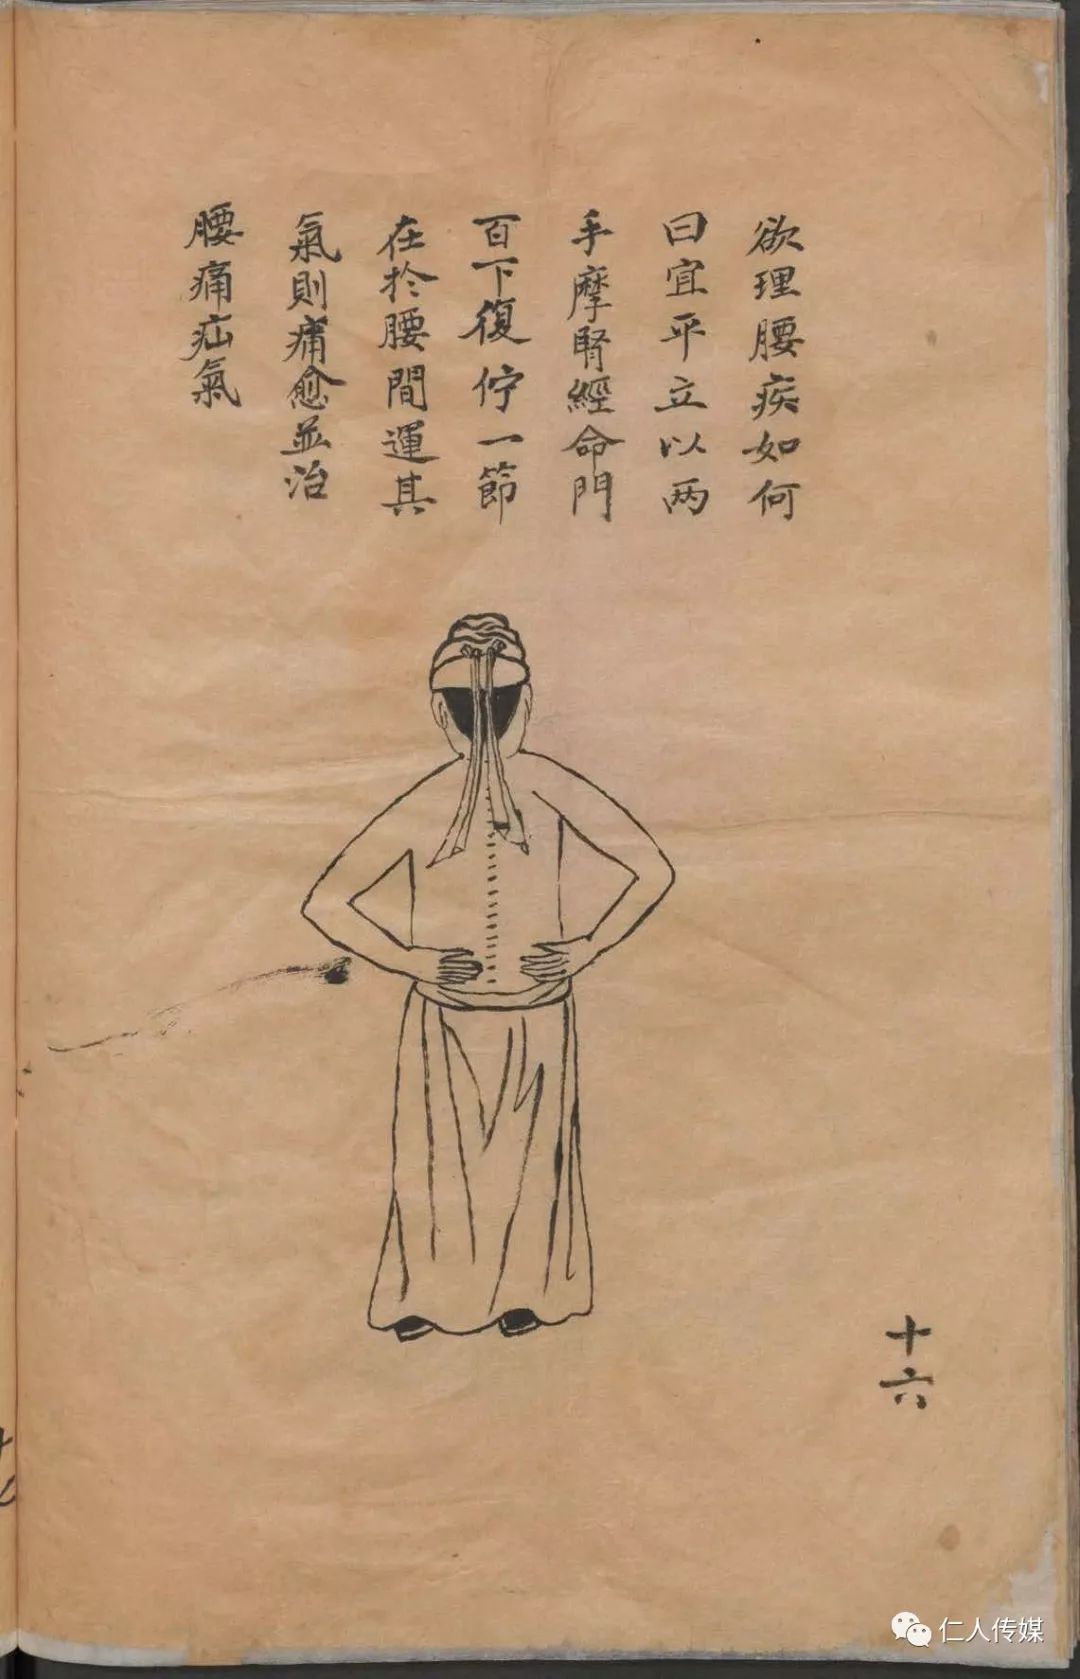 欲理腰疾如何
曰宜平立以两
手摩腎經命門
百下復佇一節
在於腰間運其
氣則痛愈並治
腰痛疝氣
十六
仁人传媒